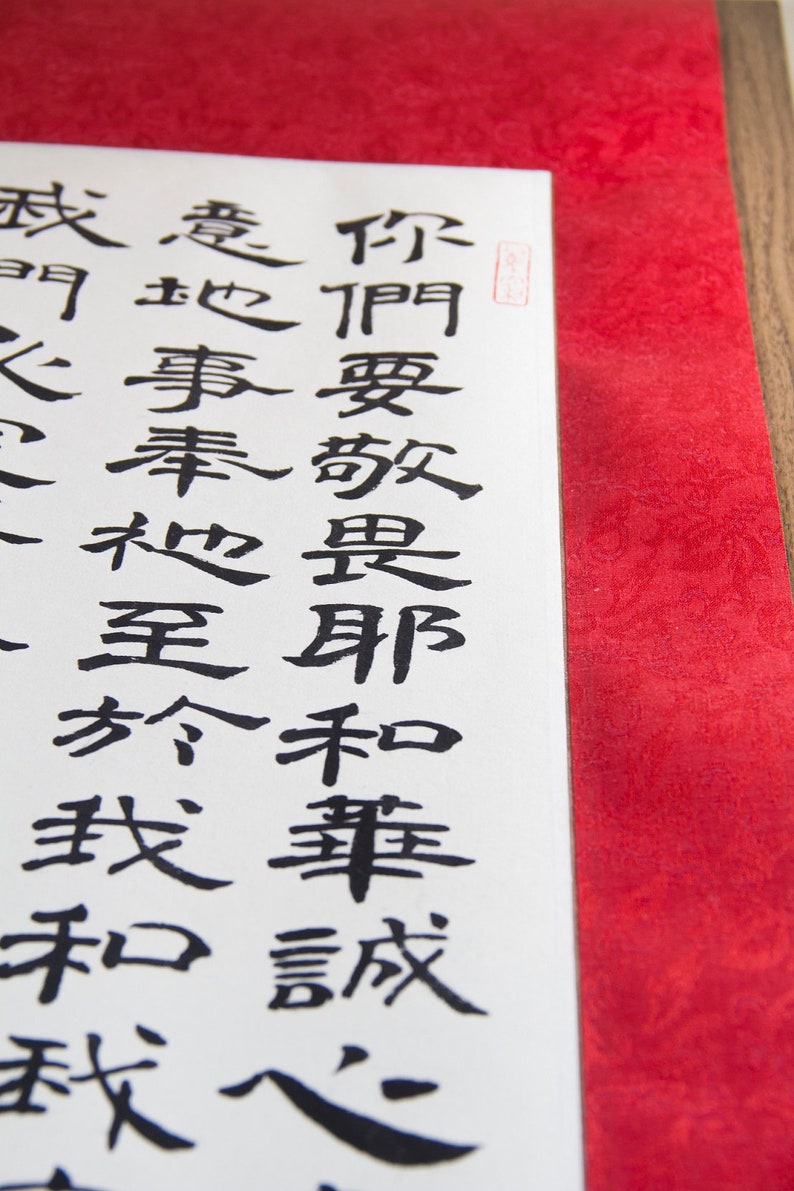 你們要敬畏耶和華誠心
意地事奉祂至於我和我
我們必定